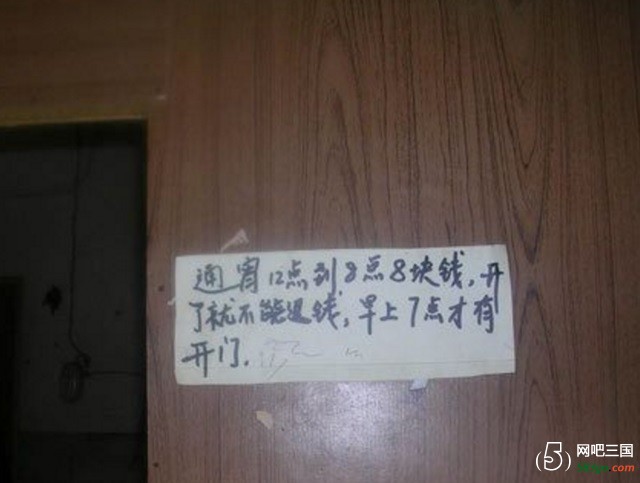 通宵12点到8点8块钱,开
了就不能退钱,早上7点才有
开门.
网吧三国